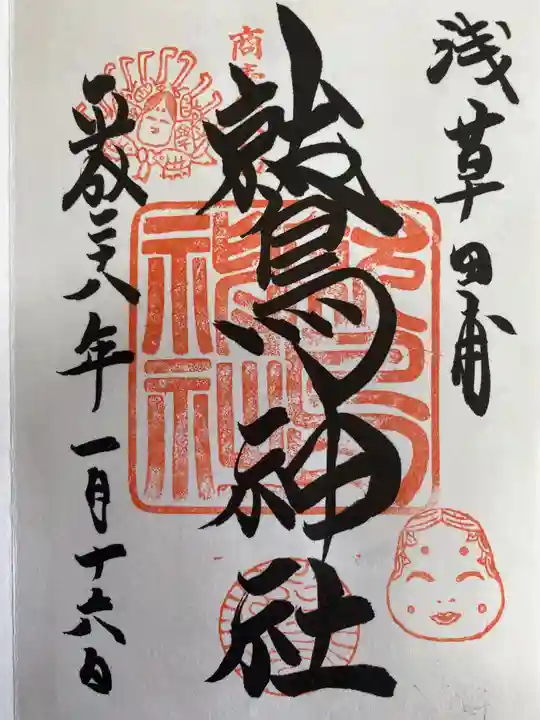 浅草田甫
鷲神社
平成二十八年一月十六日